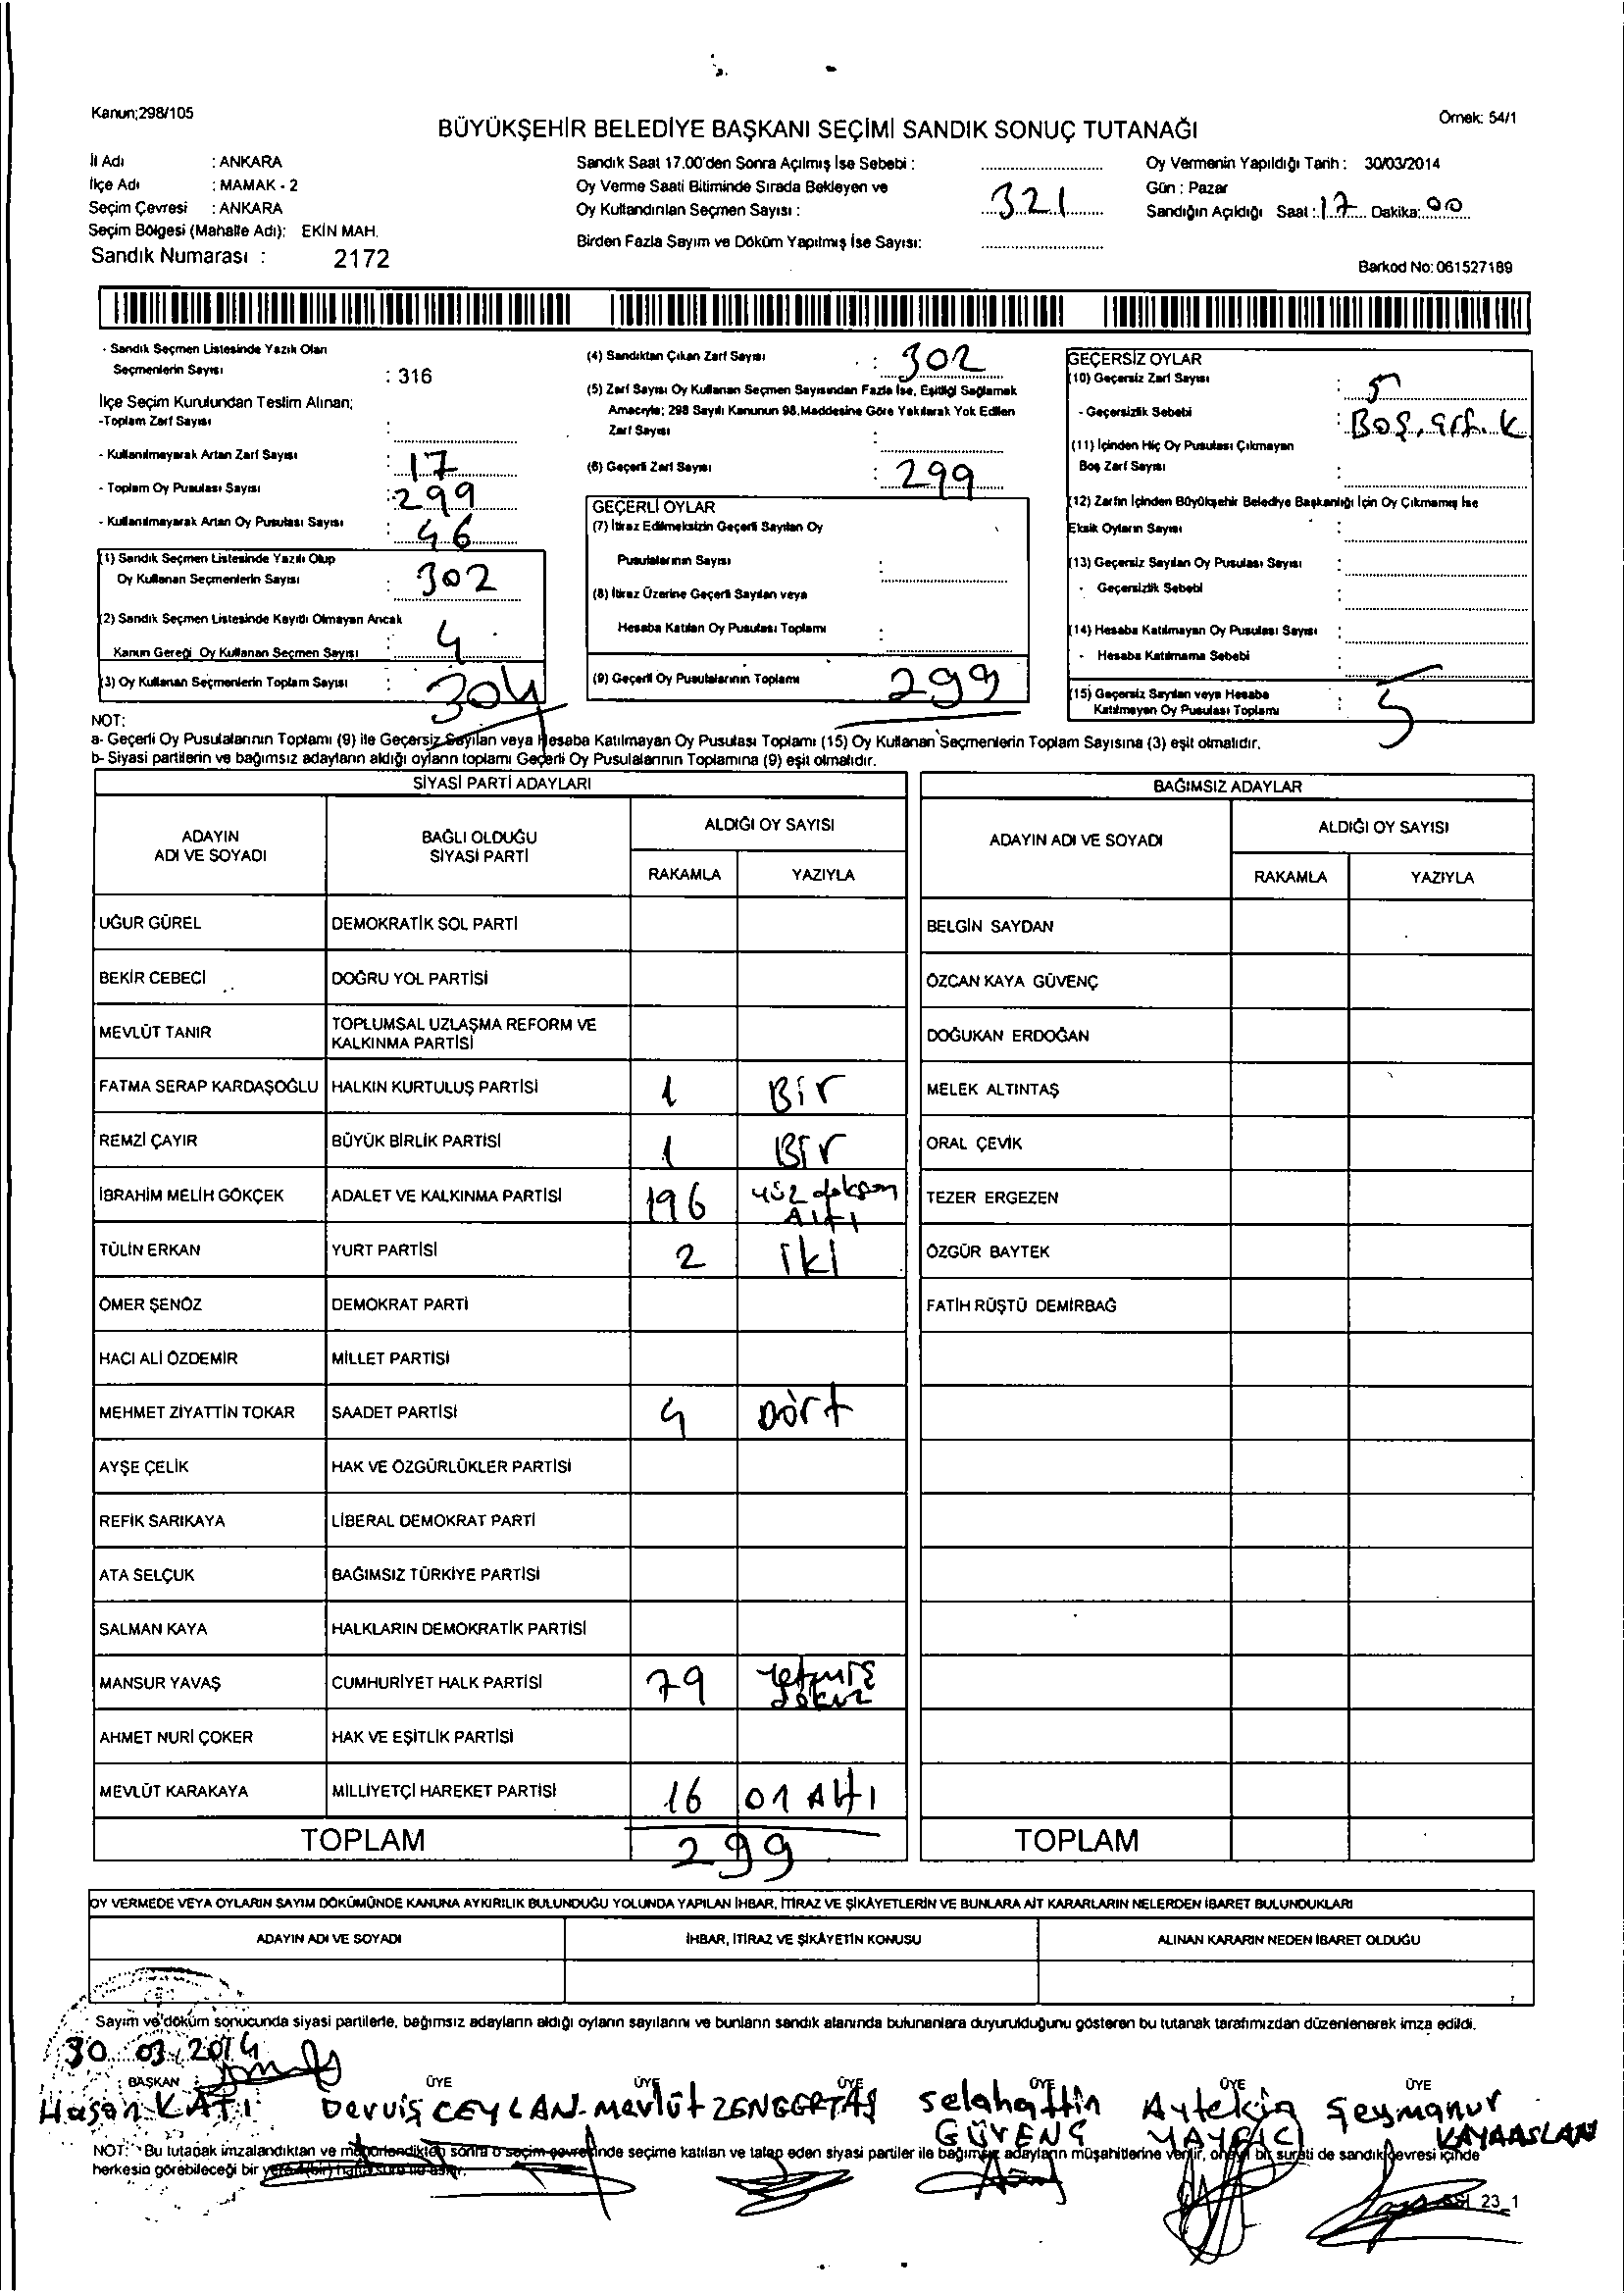 Kanun;298/105
Örnek: 54/1
BÜYÜKŞEHİR BELEDİYE BAŞKANI SEÇİMİ SANDIK SONUÇ TUTANAĞI
İl Adı : ANKARA
İlçe Adı : MAMAK - 2
Seçim Çevresi : ANKARA
Seçim Bölgesi (Mahalle Adı): EKİN MAH.
Sandık Numarası : 2172
Sandık Saat 17.00'den Sonra Açılmış İse Sebebi :
Oy Verme Saati Bitiminde Sırada Bekleyen ve
Oy Kullandırılan Seçmen Sayısı : 321
Birden Fazla Sayım ve Döküm Yapılmış İse Sayısı:
Oy Vermenin Yapıldığı Tarih : 30/03/2014
Gün : Pazar
Sandığın Açıldığı Saat : 17 Dakika: 00
Barkod No: 061527189
- Sandık Seçmen Listesinde Yazılı Olan
Seçmenlerin Sayısı : 316
İlçe Seçim Kurulundan Teslim Alınan;
-Toplam Zarf Sayısı :
- Kullanılmayarak Artan Zarf Sayısı : 17
- Toplam Oy Pusulası Sayısı : 299
- Kullanılmayarak Artan Oy Pusulası Sayısı : 46
(1) Sandık Seçmen Listesinde Yazılı Olup
Oy Kullanan Seçmenlerin Sayısı : 302
(2) Sandık Seçmen Listesinde Kayıtlı Olmayan Ancak
Kanun Gereği Oy Kullanan Seçmen Sayısı : 4
(3) Oy Kullanan Seçmenlerin Toplam Sayısı : 304
(4) Sandıktan Çıkan Zarf Sayısı : 302
(5) Zarf Sayısı Oy Kullanan Seçmen Sayısından Fazla İse, Eşitliği Sağlamak
Amacıyla; 298 Sayılı Kanunun 98.Maddesine Göre Yakılarak Yok Edilen
Zarf Sayısı :
(6) Geçerli Zarf Sayısı : 299
GEÇERLİ OYLAR
(7) İtiraz Edilmeksizin Geçerli Sayılan Oy
Pusulalarının Sayısı :
(8) İtiraz Üzerine Geçerli Sayılan veya
Hesaba Katılan Oy Pusulası Toplamı :
(9) Geçerli Oy Pusulalarının Toplamı 299
GEÇERSİZ OYLAR
(10) Geçersiz Zarf Sayısı : 5
- Geçersizlik Sebebi : Boş,
(11) İçinden Hiç Oy Pusulası Çıkmayan
Boş Zarf Sayısı :
(12) Zarfın İçinden Büyükşehir Belediye Başkanlığı İçin Oy Çıkmamış İse
Eksik Oyların Sayısı :
(13) Geçersiz Sayılan Oy Pusulası Sayısı :
- Geçersizlik Sebebi :
(14) Hesaba Katılmayan Oy Pusulası Sayısı :
- Hesaba Katılmama Sebebi :
(15) Geçersiz Sayılan veya Hesaba
Katılmayan Oy Pusulası Toplamı : 5
NOT:
a- Geçerli Oy Pusulalarının Toplamı (9) ile Geçersiz Sayılan veya Hesaba Katılmayan Oy Pusulası Toplamı (15) Oy Kullanan Seçmenlerin Toplam Sayısına (3) eşit olmalıdır.
b- Siyasi partilerin ve bağımsız adayların aldığı oyların toplamı Geçerli Oy Pusulalarının Toplamına (9) eşit olmalıdır.
SİYASİ PARTİ ADAYLARI
ADAYIN ADI VE SOYADI
BAĞLI OLDUĞU SİYASİ PARTİ
ALDIĞI OY SAYISI
RAKAMLA YAZIYLA
UĞUR GÜREL DEMOKRATİK SOL PARTİ
BEKİR CEBECİ DOĞRU YOL PARTİSİ
MEVLÜT TANIR TOPLUMSAL UZLAŞMA REFORM VE
KALKINMA PARTİSİ
FATMA SERAP KARDAŞOĞLU HALKIN KURTULUŞ PARTİSİ 1 Bir
REMZİ ÇAYIR BÜYÜK BİRLİK PARTİSİ 1 Bir
İBRAHİM MELİH GÖKÇEK ADALET VE KALKINMA PARTİSİ 196 yüz doksan
Altı
TÜLİN ERKAN YURT PARTİSİ 2 iki
ÖMER ŞENÖZ DEMOKRAT PARTİ
HACI ALİ ÖZDEMİR MİLLET PARTİSİ
MEHMET ZİYATTİN TOKAR SAADET PARTİSİ 4 Dört
AYŞE ÇELİK HAK VE ÖZGÜRLÜKLER PARTİSİ
REFİK SARIKAYA LİBERAL DEMOKRAT PARTİ
ATA SELÇUK BAĞIMSIZ TÜRKİYE PARTİSİ
SALMAN KAYA HALKLARIN DEMOKRATİK PARTİSİ
MANSUR YAVAŞ CUMHURİYET HALK PARTİSİ 79 Yetmiş
dokuz
AHMET NURİ ÇOKER HAK VE EŞİTLİK PARTİSİ
MEVLÜT KARAKAYA MİLLİYETÇİ HAREKET PARTİSİ 16 on Altı
TOPLAM 299
BAĞIMSIZ ADAYLAR
ADAYIN ADI VE SOYADI
ALDIĞI OY SAYISI
RAKAMLA YAZIYLA
BELGİN SAYDAN
ÖZCAN KAYA GÜVENÇ
DOĞUKAN ERDOĞAN
MELEK ALTINTAŞ
ORAL ÇEVİK
TEZER ERGEZEN
ÖZGÜR BAYTEK
FATİH RÜŞTÜ DEMİRBAĞ
TOPLAM
OY VERMEDE VEYA OYLARIN SAYIM DÖKÜMÜNDE KANUNA AYKIRILIK BULUNDUĞU YOLUNDA YAPILAN İHBAR, İTİRAZ VE ŞİKÂYETLERİN VE BUNLARA AİT KARARLARIN NELERDEN İBARET BULUNDUKLARI
ADAYIN ADI VE SOYADI İHBAR, İTİRAZ VE ŞİKÂYETİN KONUSU ALINAN KARARIN NEDEN İBARET OLDUĞU
Sayım ve döküm sonucunda siyasi partilerle, bağımsız adayların aldığı oyların sayılarını ve bunların sandık alanında bulunanlara duyurulduğunu gösteren bu tutanak tarafımızdan düzenlenerek imza edildi.
30.03.2014
BAŞKAN ÜYE ÜYE ÜYE ÜYE ÜYE ÜYE
Hasan KATI Derviş CEYLAN Mevlüt ZENGERTAŞ Selahattin Aytekin Şeymanur
GÜVENÇ KAYAASLAN
NOT: Bu tutanak imzalandıktan ve mühürlendikten sonra o seçim çevresinde seçime katılan ve talep eden siyasi partiler ile bağımsız adayların müşahitlerine verilir, onaylı bir sureti de sandık çevresi içinde
herkesin görebileceği bir yere 1 (bir) hafta süre ile asılır.
23_1